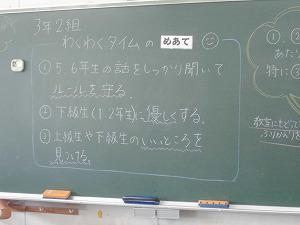 3年2組
わくわくタイムの めあて
① 5.6年生の話をしっかり聞いて
ルールを守る。
② 下級生(1.2年生)に優しくする。
③ 上級生や下級生のいいところを
見つける。
①
あた
特に③
教室にもどって
ふりかえりを